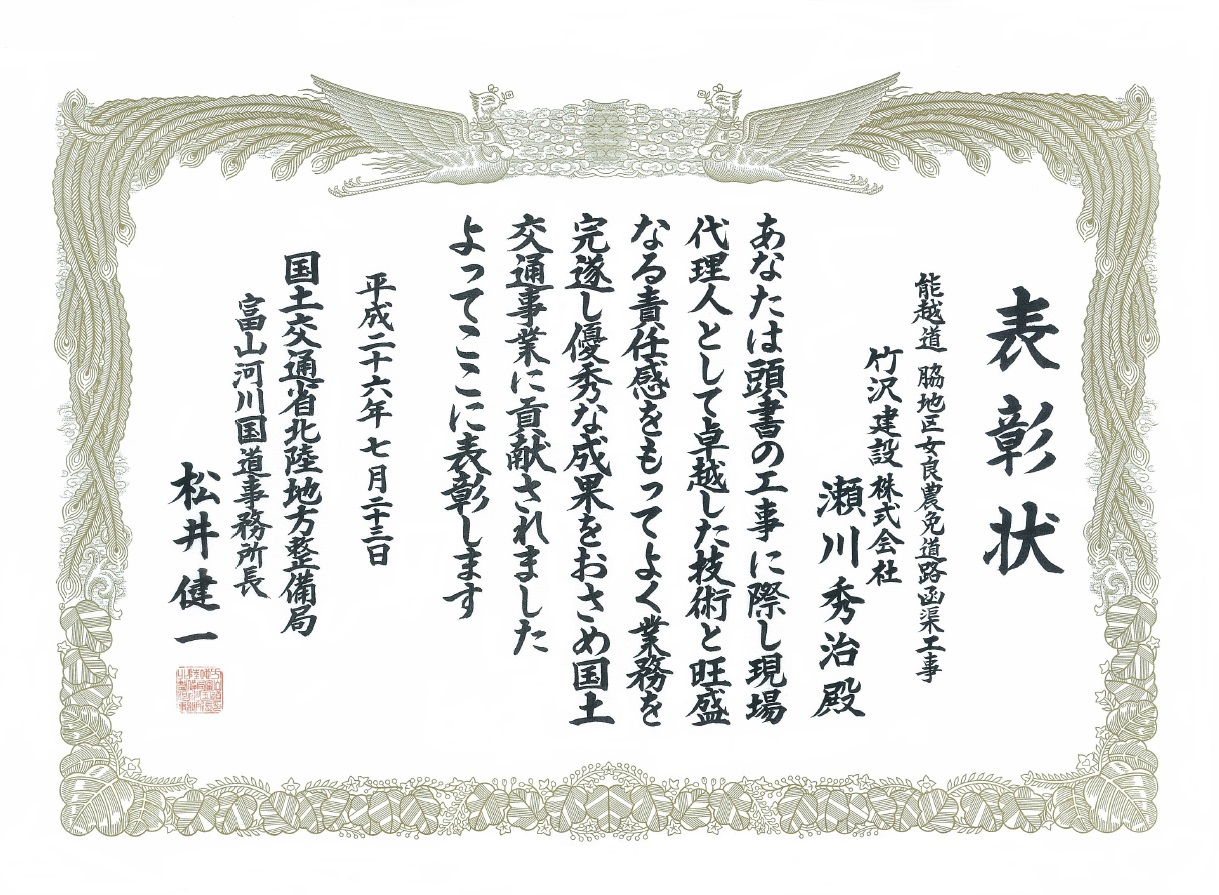 表彰状
能越道 脇地区女良農免道路函渠工事
竹沢建設株式会社
瀬川秀治殿
あなたは頭書の工事に際し現場
代理人として卓越した技術と旺盛
なる責任感をもってよく業務を
完遂し優秀な成果をおさめ国土
交通事業に貢献されました
よってここに表彰します
平成二十六年七月二十三日
国土交通省北陸地方整備局
富山河川国道事務所長
松井健一